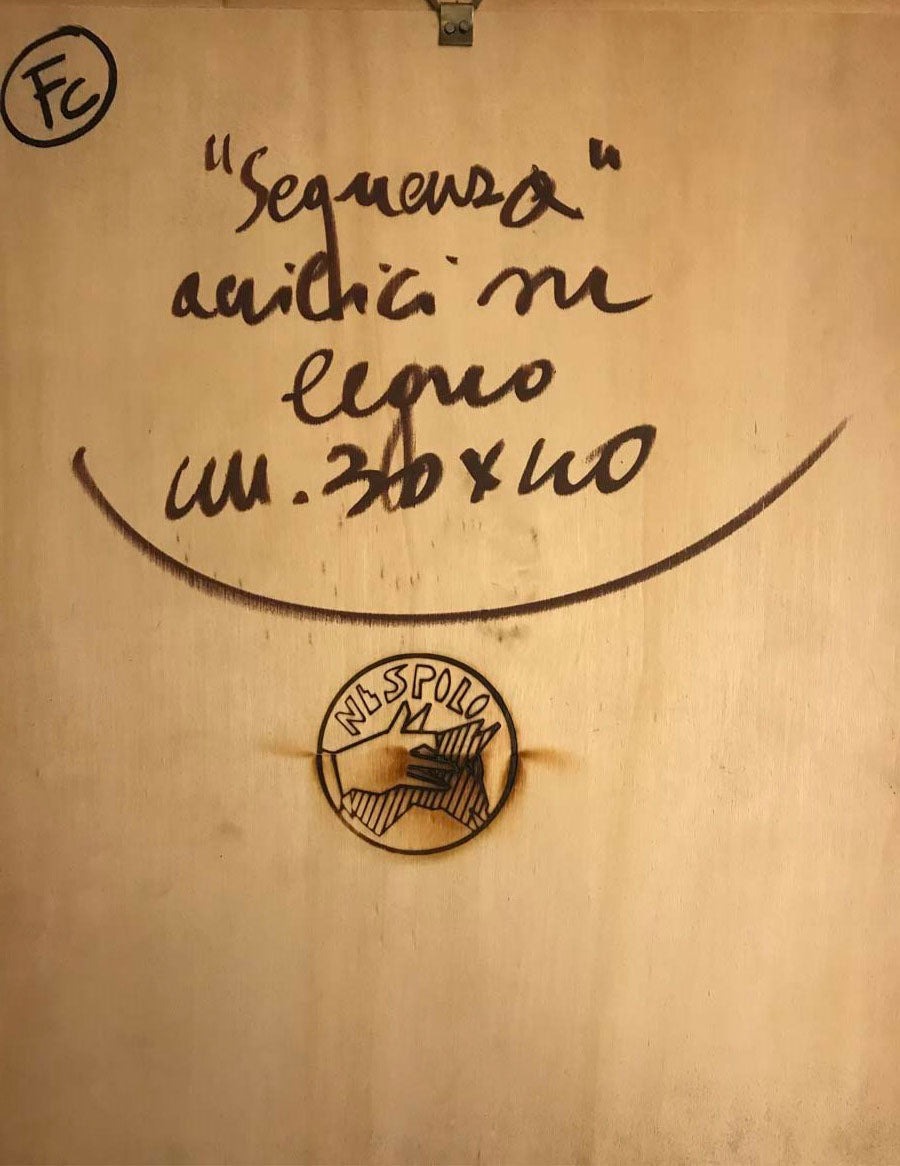 FC
"Sequenza"
acrilici su
legno
cm. 30x40
NESPOLO